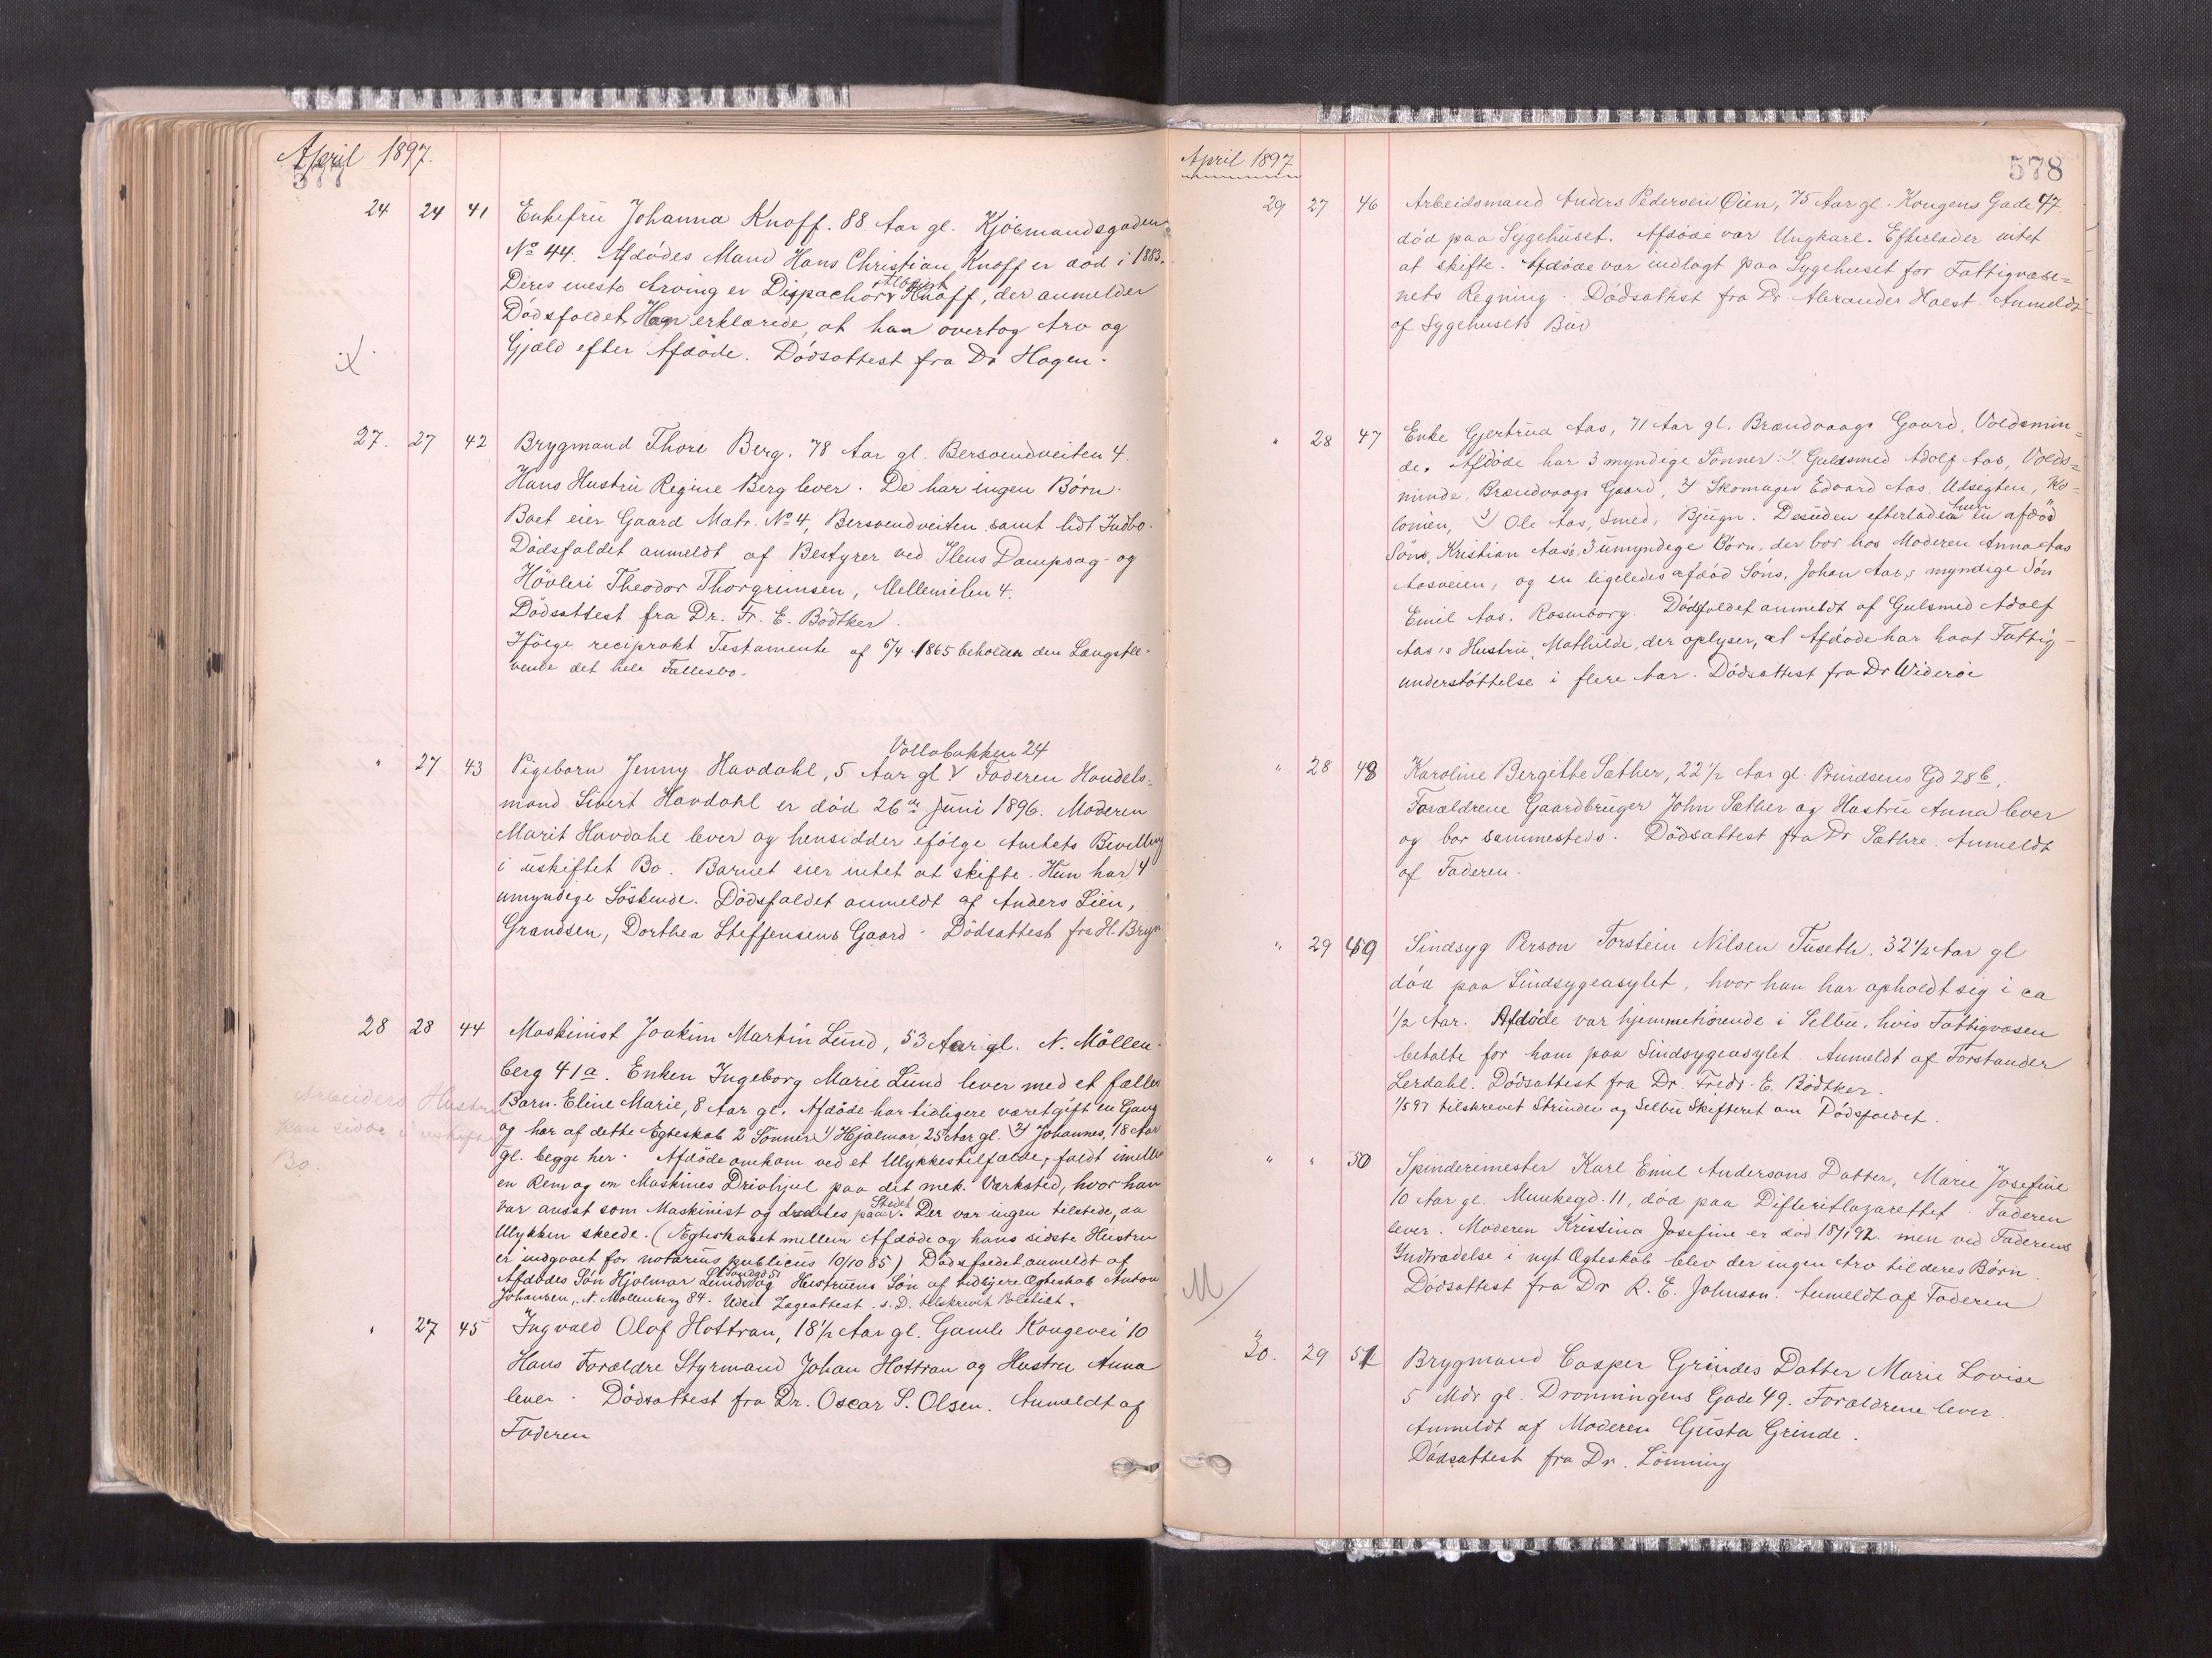 April 1897.
577
24 24 41 Enkefru Johanna Knoff. 88 Aar gl. Kjøbmandsgaden
No 44. Afdødes Mand Hans Christian Knoff er død i 1883.
Deres eneste Arving er Dispachør Knoff, der anmelder
Dødsfaldet. Han erklærede, at han overtog Arv og
Gjæld efter Afdøde. Dødsattest fra Dr Hagen.
27. 27 42 Brygmand Thore Berg. 78 Aar gl. Bersvendveiten 4.
Hans Hustru Regine Berg lever. De har ingen Børn.
Boet eier Gaard Matr. No 4, Bersvendveiten samt lidt Indbo.
Dødsfaldet anmeldt af Bestyrer ved Ilens Dampsag- og
Høvleri Theodor Thorgrimsen, Mellemilen 4.
Dødsattest fra Dr. Fr. E. Bødtker.
Ifølge reciprokt Testamente af 6/4 1865 beholder den Længstle-
vende det hele Fællesbo.
Vollabakken 24
" 27 43 Pigebarn Jenny Havdahl, 5 Aar gl. Faderen Handels-
mand Sivert Havdahl er død 26de Juni 1896. Moderen
Marit Havdahl lever og hensidder ifølge Amtets Bevilling
i uskiftet Bo. Barnet eier intet at skifte. Hun har 4
umyndige Söskende. Dødsfaldet anmeldt af Anders Lien,
Grandsen, Dorthea Steffensens Gaard. Dødsattest fra H. Bryn
28 28 44 Maskinist Joakim Martin Lund, 53 Aar gl. N. Möllen-
berg 41a. Enken Ingeborg Marie Lund lever med et fælles
Barn Eline Marie, 8 Aar gl. Afdøde har tidligere været gift en Gang
og har af dette Egteskab 2 Sønner 1) Hjalmar, 25 Aar gl. 2) Johannes, 18 Aar
gl. begge her. Afdøde omkom ved et Ulykkestilfælde, faldt imellem
en Rem og en Maskines Drivhjul paa det mek. Værksted, hvor han
var ansat som Maskinist og dræbtes paa Stedet. Der var ingen tilstede, da
Ulykken skeede. (Ægteskabet mellem Afdøde og hans sidste Hustru
er indgaaet for notarius publicus 10/10 85) Dødsfaldet anmeldt af
Afdødes Søn Hjalmar Lund og Hustruens Søn af tidligere Ægteskab Anton
Johansen, N. Møllenberg 84. Uden Lægeattest. s. D. tilskrevet Politiet.
Arbeiders Hustru
kan sidde i uskiftet
Bo.
" 27 45 Ingvald Olaf Hottran, 18 1/2 Aar gl. Gamle Kongevei 10
Hans Forældre Styrmand Johan Hottran og Hustru Anna
lever. Dødsattest fra Dr. Oscar S. Olsen. Anmeldt af
Faderen
April 1897
578
29 27 46 Arbeidsmand Anders Pedersen Øien, 75 Aar gl. Kongens Gade 47.
død paa Sygehuset. Afdøde var Ungkarl. Efterlader intet
at skifte. Afdøde var indlagt paa Sygehuset for Fattigvæse=
nets Regning. Dødsattest fra Dr Alexander Holst. Anmeldt
af Sygehusets Bud
" 28 47 Enke Gjertrud Aas, 71 Aar gl. Brændvaags Gaard, Voldsmin=
de. Afdøde har 3 myndige Sønner: 1) Guldsmed Adolf Aas, Volds=
minde, Brændvaags Gaard, 2) Skomager Edvard Aas Udsigten, Ko=
lonien, 3) Ole Aas, Smed, Bjugn. Desuden efterlader hun en afdød
Søns, Kristian Aas's, 3 umyndige Børn, der bor hos Moderen Anna Aas
Aasveien, og en ligeledes afdød Søns, Johan Aas's myndige Søn
Emil Aas, Rosenborg. Dødsfaldet anmeldt af Gulsmed Adolf
Aas's Hustru, Mathilde, der oplyser, at Afdøde har havt Fattig-
understøttelse i flere Aar. Dødsattest fra Dr Widerøe
" 28 48 Karoline Bergitte Sæther, 22 1/2 Aar gl. Prindsens Gd 28b.
Forældrene Gaardbruger John Sæther og Hustru Anna lever
og bor sammesteds. Dødsattest fra Dr Sæthre. Anmeldt
af Faderen.
" 29 49 Sindsyg Person Torstein Nilsen Tuseth. 32 1/2 Aar gl
død paa Sindsygeasylet, hvor han har opholdt sig i ca
1/2 Aar. Afdøde var hjemmehørende i Selbu, hvis Fattigvæsen
betalte for ham paa Sindsygeasylet. Anmeldt af Forstander
Lerdahl. Dødsattest fra Dr. Fredr. E. Bødtker.
1/5 97 tilskrevet Strinden og Selbu Skifteret om Dødsfaldet.
" " 50 Spinderimester Karl Emil Andersons Datter, Marie Josefine
10 Aar gl. Munkegd. 11, død paa Difteritlazarettet. Faderen
lever. Moderen Kristina Josefine er død 18/1 92. men ved Faderens
Indtrædelse i nyt Ægteskab blev der ingen Arv til deres Børn.
Dødsattest fra Dr R. E. Johnson. Anmeldt af Faderen
M/
30. 29 51 Brygmand Casper Grindes Datter Marie Lovise
5 Mdr gl. Dronningens Gade 49. Forældrene lever.
Anmeldt af Moderen Gusta Grinde.
Dødsattest fra Dr. Lönning